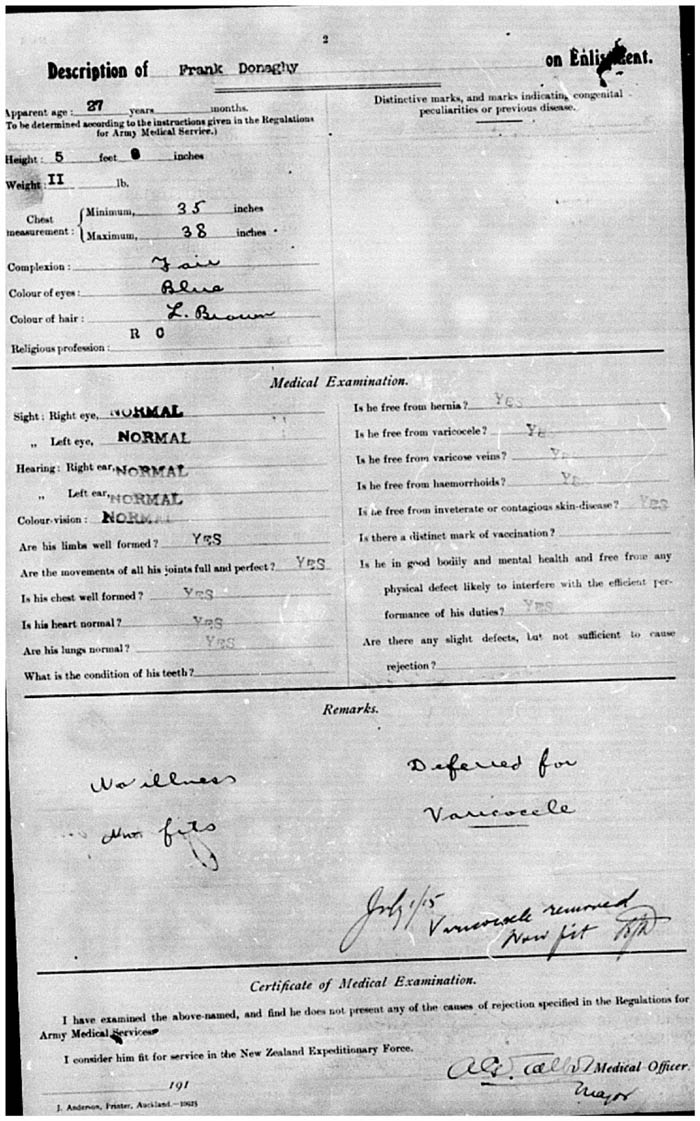 2
Description of Frank Donaghy on Enlistment.
Apparent age: 27 years months.
To be determined according to the instructions given in the Regulations
for Army Medical Service.)
Height: 5 feet inches
Weight: II lb.
Chest measurement: { Minimum, 35 inches
Maximum, 38 inches
Complexion: Fair
Colour of eyes: Blue
Colour of hair: L. Brown
Religious profession: R C
Distinctive marks, and marks indicating congenital
peculiarities or previous disease.
Medical Examination.
Sight: Right eye, NORMAL
„ Left eye, NORMAL
Hearing: Right ear, NORMAL
„ Left ear, NORMAL
Colour-vision: NORMAL
Are his limbs well formed? YES
Are the movements of all his joints full and perfect? YES
Is his chest well formed? YES
Is his heart normal? YES
Are his lungs normal? YES
What is the condition of his teeth?
Is he free from hernia? YES
Is he free from varicocele? YES
Is he free from varicose veins? YES
Is he free from haemorrhoids? YES
Is he free from inveterate or contagious skin-disease? YES
Is there a distinct mark of vaccination?
Is he in good bodily and mental health and free from any
physical defect likely to interfere with the efficient per-
formance of his duties? YES
Are there any slight defects, but not sufficient to cause
rejection?
Remarks.
No illness
fits
Deferred for
Varicocele
July 1/15
Varicocele removed
Now fit
Certificate of Medical Examination.
I have examined the above-named, and find he does not present any of the causes of rejection specified in the Regulations for
Army Medical Services.
I consider him fit for service in the New Zealand Expeditionary Force.
Medical Officer.
Major
191
J. Anderson, Printer, Auckland.—10615